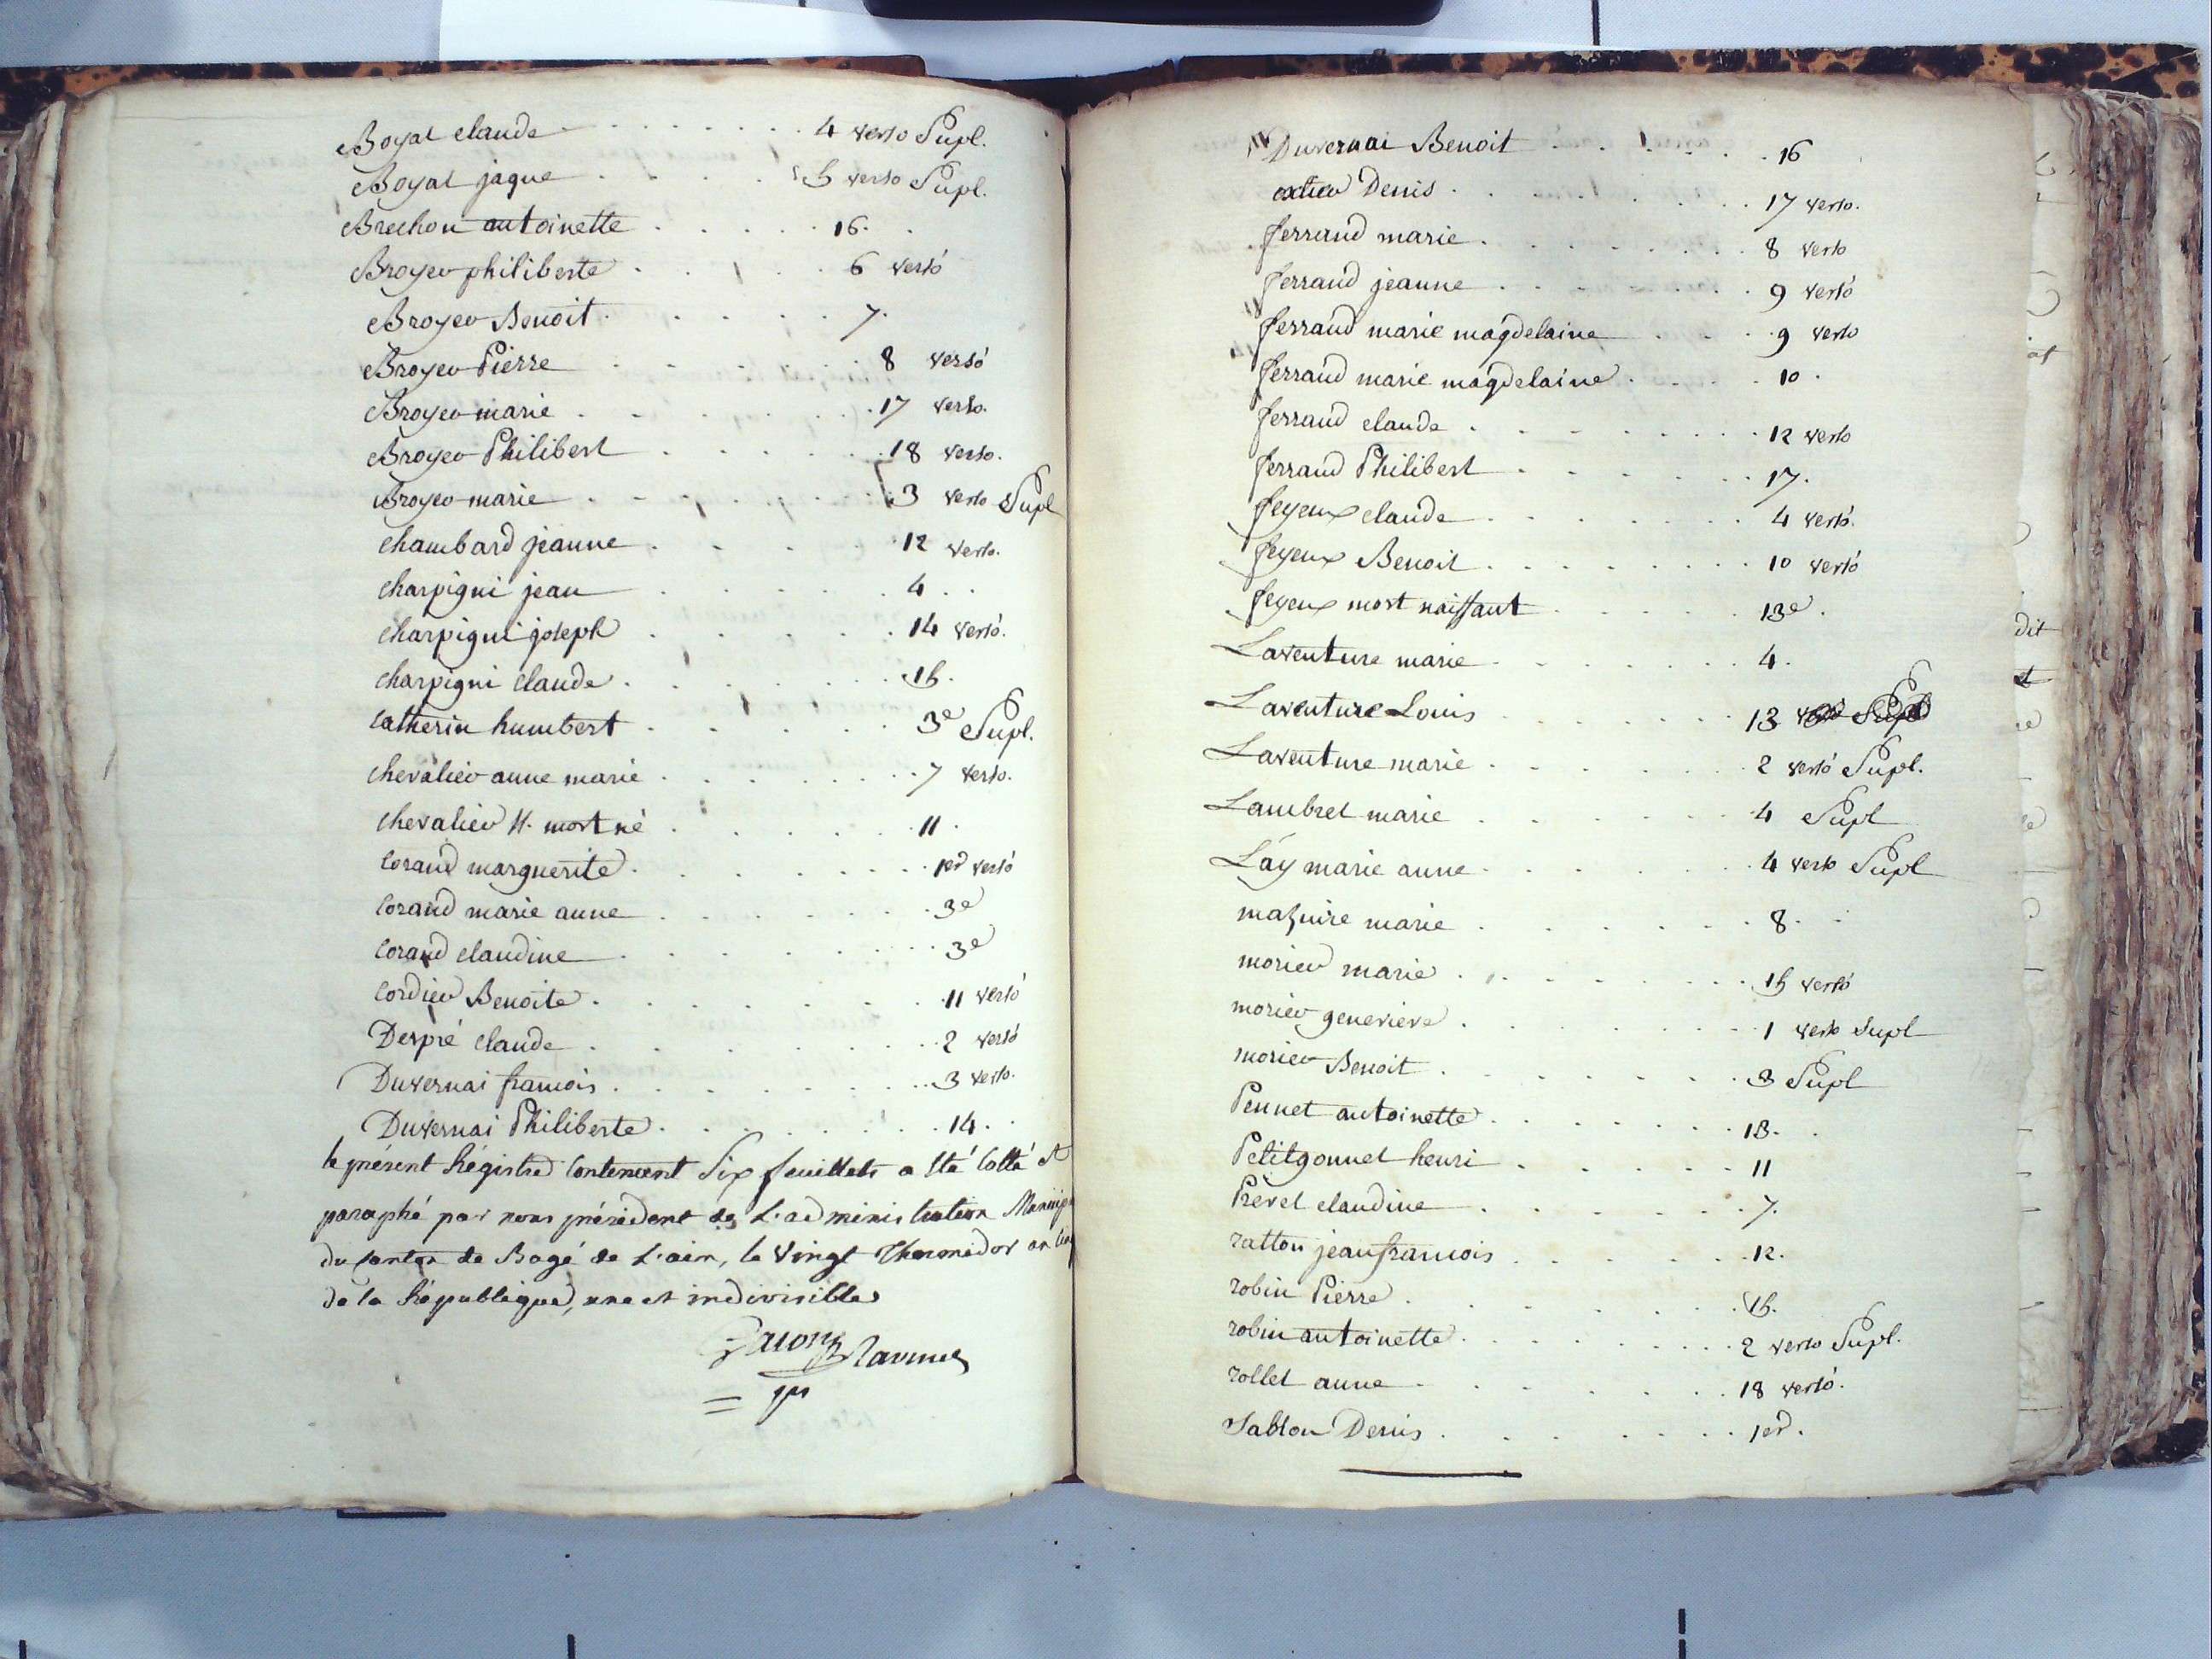 Boyat claude . . . . . . . 4 verso Supl.
Boyat jaque . . . . . 5 verso Supl.
Brechon antoinette . . . . . 16.
Broyer philiberte . . . . 6 verso
Broyer Benoit . . . . . 7.
Broyer Pierre . . . . . 8 verso
Broyer marie . . . . . . 17 verso.
Broyer Philibert . . . . . 18 verso.
Broyer marie . . . . . . 3 verso Supl
Chambard jeanne . . . . . 12 verso.
Charpigni jean . . . . . 4 . .
Charpigni joseph . . . . . 14 verso.
Charpigni Claude . . . . . . 15.
Catherin humbert . . . . . 3e Supl.
Chevalier anne marie . . . . . . 7 verso.
Chevalier N. mort né . . . . . 11 .
Corand marguerite . . . . . . 1er verso
Corand marie anne . . . . . . 3e
Corand claudine . . . . . . 3e
Cordier Benoite . . . . . . . 11 verso
Despré Claude . . . . . . . 2 verso
Duvernai francois . . . . . . . 3 verso.
Duvernai Philiberte . . . . . . . 14 .
le présent Régistre Contenent Six feuillets a Eté Cotté et
paraphé par nous président de L'administration
du Canton de Bagé de L'ain, le Vingt Thermidor an
de la République, une et indivisible
Duvernai Benoit . . . . . 16
extier Denis . . . . . . . 17 verso.
ferrand marie . . . . . . . 8 verso
ferrand jeanne . . . . . . 9 verso
ferrand marie magdelaine . . . 9 verso
ferrand marie magdelaine . . . . 10 .
ferrand claude . . . . . . . 12 verso
ferrand Philibert . . . . . . 17 .
feyeux claude . . . . . . . 4 verso.
feyeux Benoit . . . . . . . . 10 verso
feyeux mort naissant . . . . . 13e .
Laventure marie . . . . . . 4 .
Laventure Louis . . . . . . . 13
Laventure marie . . . . . . 2 verso Supl.
Lambret marie . . . . . . 4 Supl
Lay marie anne . . . . . . 4 verso Supl
mazuire marie . . . . . . 8 . .
morier marie . . . . . . . 15 verso
morier genevieve . . . . . . . 1 verso Supl
morier Benoit . . . . . . . 3 Supl
Pennet antoinette . . . . . . . 13 . .
Petitgonnet henri . . . . . 11
Prevet claudine . . . . . . . 7.
ratton jean francois . . . . . . 12 .
robin Pierre . . . . . . . 15 .
robin antoinette . . . . . . . 2 verso Supl.
rollet anne . . . . . . . 18 verso .
Sablon Denis . . . . . . . 1er .